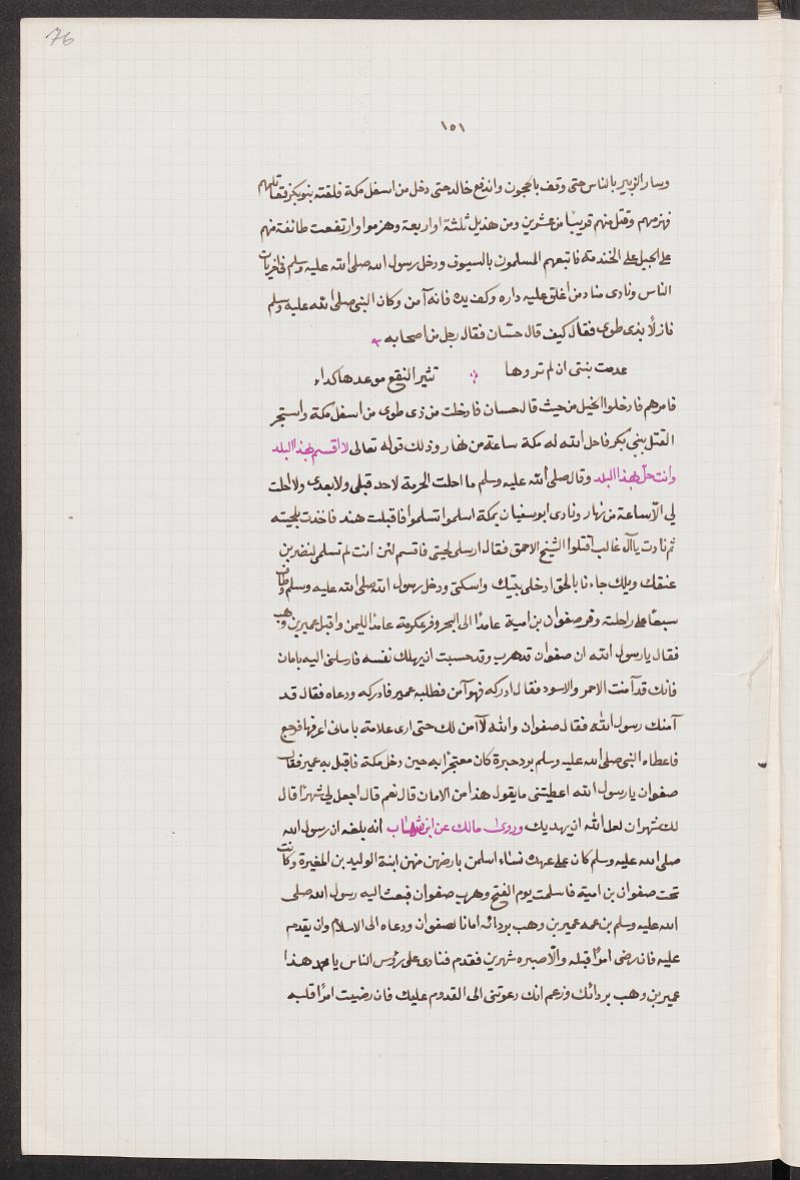 76
١٥١
وسار الزبير بالناس حتى وقف بالحجون واندفع خالد حتى دخل من اسفل مكة فلقته بنو بكر فقاتلهم
فهزمهم وقتل منهم قريبًا من عشرين ومن هذيل ثلثة او اربعة وهزموا وارتفعت طائفة منهم
على الجبل على الخندمة فاتبعهم المسلمون بالسيوف ودخل رسول الله صلى الله عليه وسلم في اخريات
الناس ونادى مناد من اغلق عليه داره وكف يده فانه آمن وكان النبي صلى الله عليه وسلم
نازلًا بذى طوى فقال كيف قال حسّان فقال رجل من اصحابه
عدمت بنتى ان لم تروها تثير النقع موعدها كداء
فامرهم فادخلوا الخيل من حيث قال حسان فادخلت من ذى طوى من اسفل مكة واستجر
القتل ببنى بكر فاحل الله له مكة ساعة من نهار وذلك قوله تعالى لا اقسم بهذا البلد
وانت حلّ بهذا البلد وقال صلى الله عليه وسلم ما احلت الحرمة لاحد قبلى ولا بعدى ولا احلت
لي الّا ساعة من نهار ونادى ابو سفيان بمكة اسلموا تسلموا فاقبلت هند فاخذت بلحيته
ثم نادت يا آل غالب اقتلوا الشيخ الاحمق فقال ارسلى لحيتى فاقسم لئن انت لم تسلمى لنضربن
عنقك ويلك جاءنا بالحق ادخلى بيتك واسكتى ودخل رسول الله صلى الله عليه وسلم وطاف
سبعًا على راحلته وفر صفوان بن امية عامدًا الى البحر وفر عكرمة عامدًا لليمن واقبل عمير بن وهب
فقال يا رسول الله ان صفوان قد هرب وقد حسبت ان يهلك نفسه فارسلنى اليه بامان
فانك قد آمنت الاحمر والاسود فقال ادركه فهو آمن فطلبه عمير فادركه ودعاه فقال قد
آمنك رسول الله فقال صفوان والله لا آمن لك حتى ارى علامة بامانى اعرفها فرجع
فاعطاه النبي صلى الله عليه وسلم برد حبرة كان معتجرًا به حين دخل مكة فاقبل به عمير فقال
صفوان يا رسول الله اعطيتنى ما يقول هذا من الامان قال نعم قال اجعل لي شهرًا قال
لك شهران لعل الله ان يهديك وروى مالك عن ابن شهاب انه بلغه ان رسول الله
صلى الله عليه وسلم كان على عهدك نساء اسلمن بارضهن منهن ابنة الوليد بن المغيرة وكانت
تحت صفوان بن امية فاسلمت يوم الفتح وهرب صفوان فبعث اليه رسول الله صلى
الله عليه وسلم بن عمه عمير بن وهب بردائه امانا لصفوان ودعاه الى الاسلام وان يقدم
عليه فان رضى امرًا قبله والّا صبره شهرين فقدم فنادى على رؤس الناس يا محمد هذا
عمير بن وهب بردائك وزعم انك دعوتنى الى القدوم عليك فان رضيت امرًا قلبه